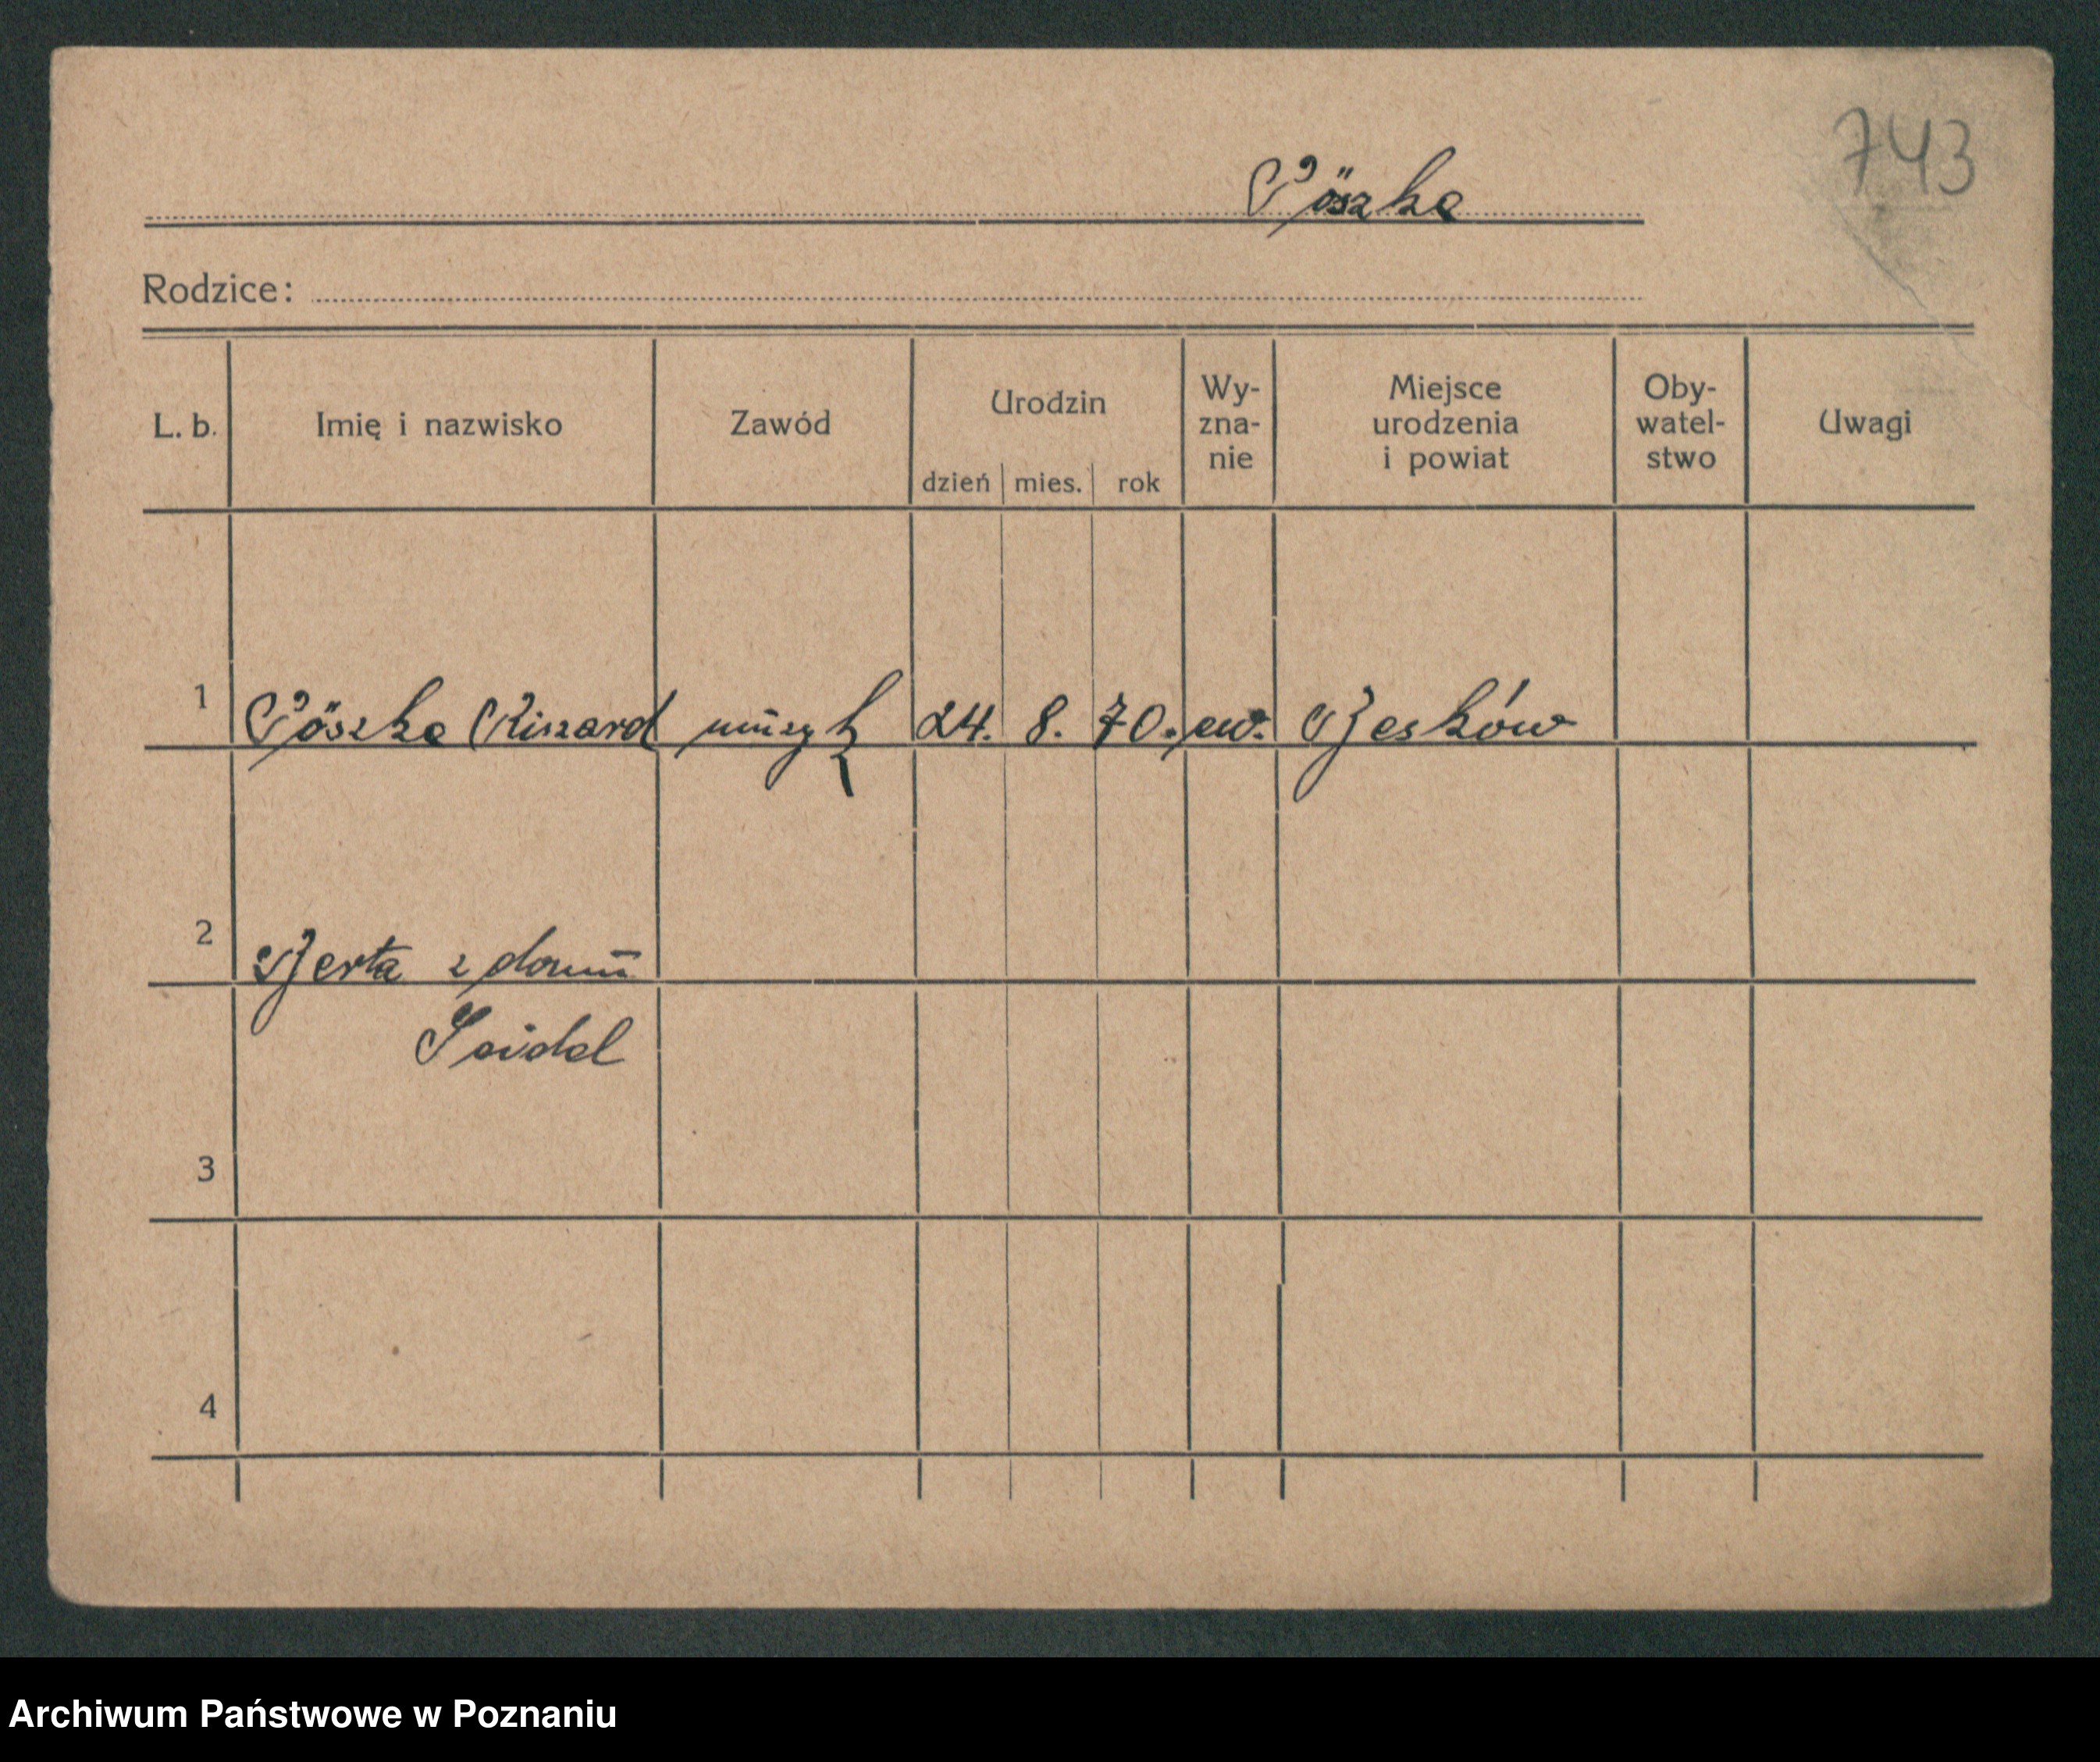 743
Pöszke
Rodzice:
L. b. Imię i nazwisko Zawód Urodzin dzień mies. rok Wy-zna-nie Miejsce urodzenia i powiat Oby-watel-stwo Uwagi
1 Pöszke Riszard muzyk 24. 8. 70. ew. Besków
2 Berta z domu
Seidel
3
4
Archiwum Państwowe w Poznaniu